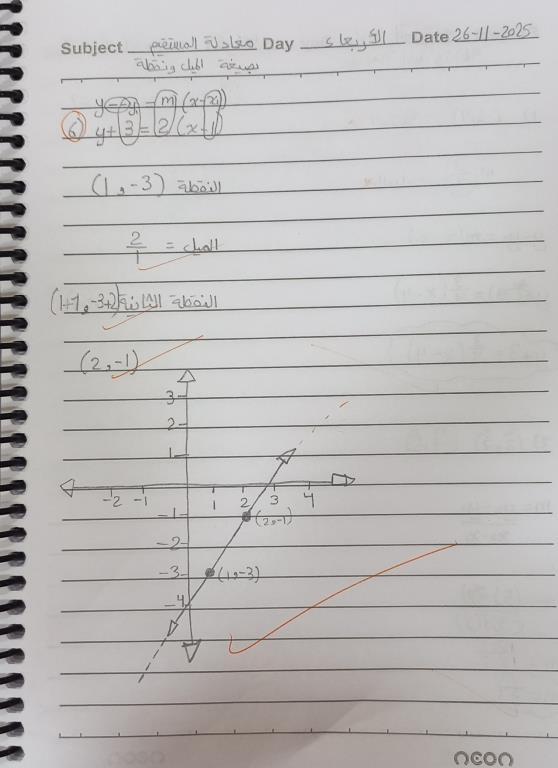 Subject معادلة المستقيم Day الأربعاء Date 26-11-2025
بصيغة الميل ونقطة
y - y₁ = m (x - x₁)
6 y + 3 = 2 (x - 1)
النقطة (1, -3)
الميل = 2/1
النقطة الثانية (1+1, -3+2)
(2, -1)
3
2
1
-2 -1 1 2 3 4
-1 (2, -1)
-2
-3 (1, -3)
-4
neon